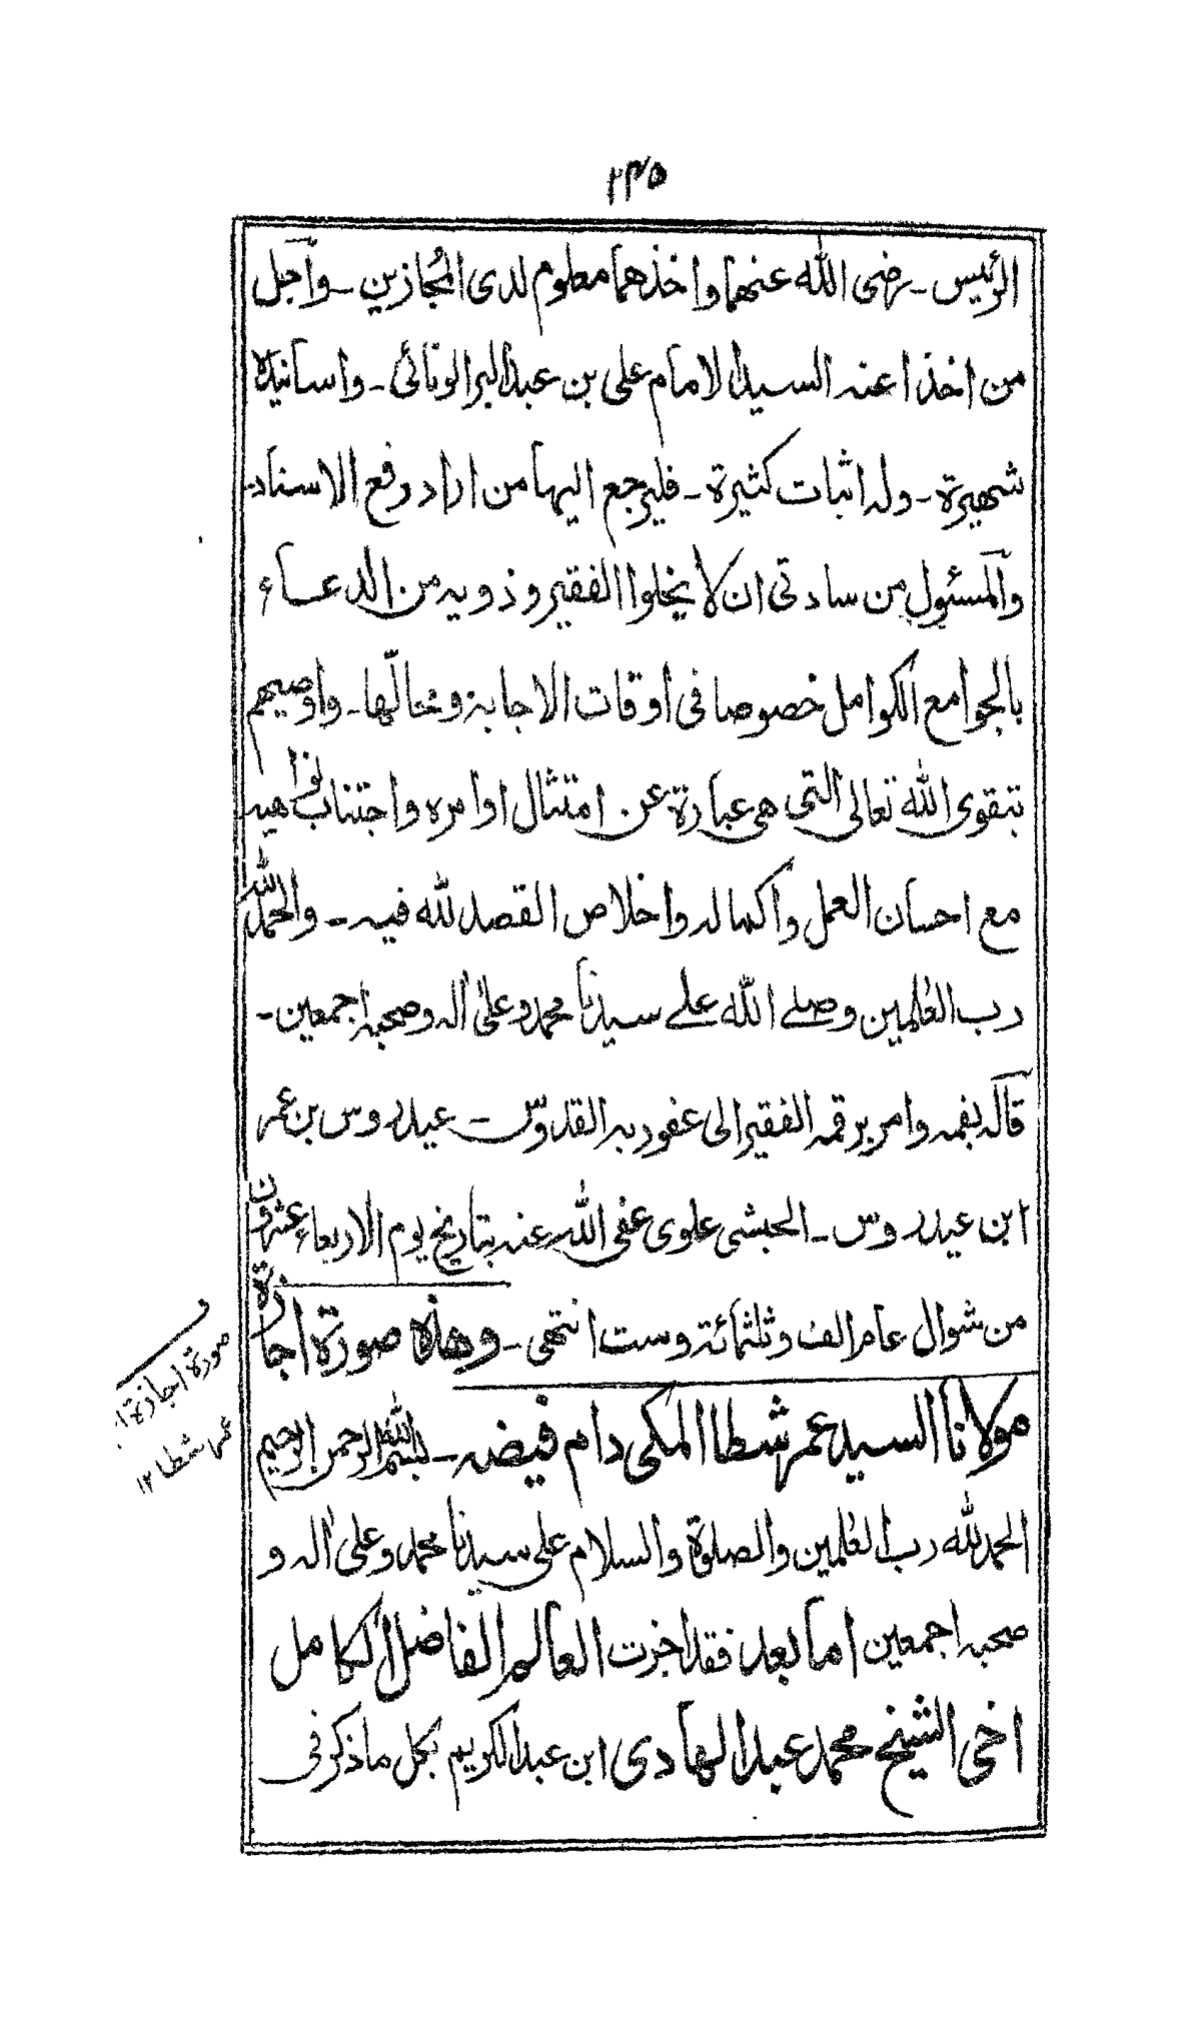 ٢٣٥
الرئيس ـ رضى الله عنهما واخذهما معلوم لدى المُجازين ـ وآجل
من اخذا عنه السيد الامام على بن عبد البر الونائى ـ واسانيده
شهيرة ـ وله اثبات كثيرة ـ فليرجع اليها من اراد رفع الاسناد
والمسئول من سادتى ان لا يخلوا الفقير وذويه من الدعاء
بالجوامع الكوامل خصوصا فى اوقات الاجابة و ـ واوصيهم
بتقوى الله تعالى التى هى عبارة عن امتثال اوامره واجتناب نواهيه
مع احسان العمل واكماله واخلاص القصد لله فيه ـ والحمد لله
رب العٰلمين وصلے الله علے سيدنا محمد وعلىٰ اٰله وصحبه اجمعين ـ
قاله بفمه وامر برقمه الفقير الى عفو ربه القدوس ـ عيدروس بن عمر
ابن عيدروس ـ الحبشى علوى عفى الله عنه بتاريخ يوم الاربعاء عشرون
من شوال عام الف وثلثمائة وست انتهى ـ وهذه صورة اجازة
مولانا السيد عمر شطا المكى دام فيضه ـ بسم الله الرحمن الرحيم
الحمد لله رب العٰلمين والصلوٰة والسلام على سيدنا محمد وعلىٰ اٰله و
صحبه اجمعين اما بعد فقد اجزت العالم الفاضل الكامل
اخى الشيخ محمد عبد الهادى ابن عبد الكريم بكل ما ذكر فى
صورة اجازة
عمر شطا ١٢